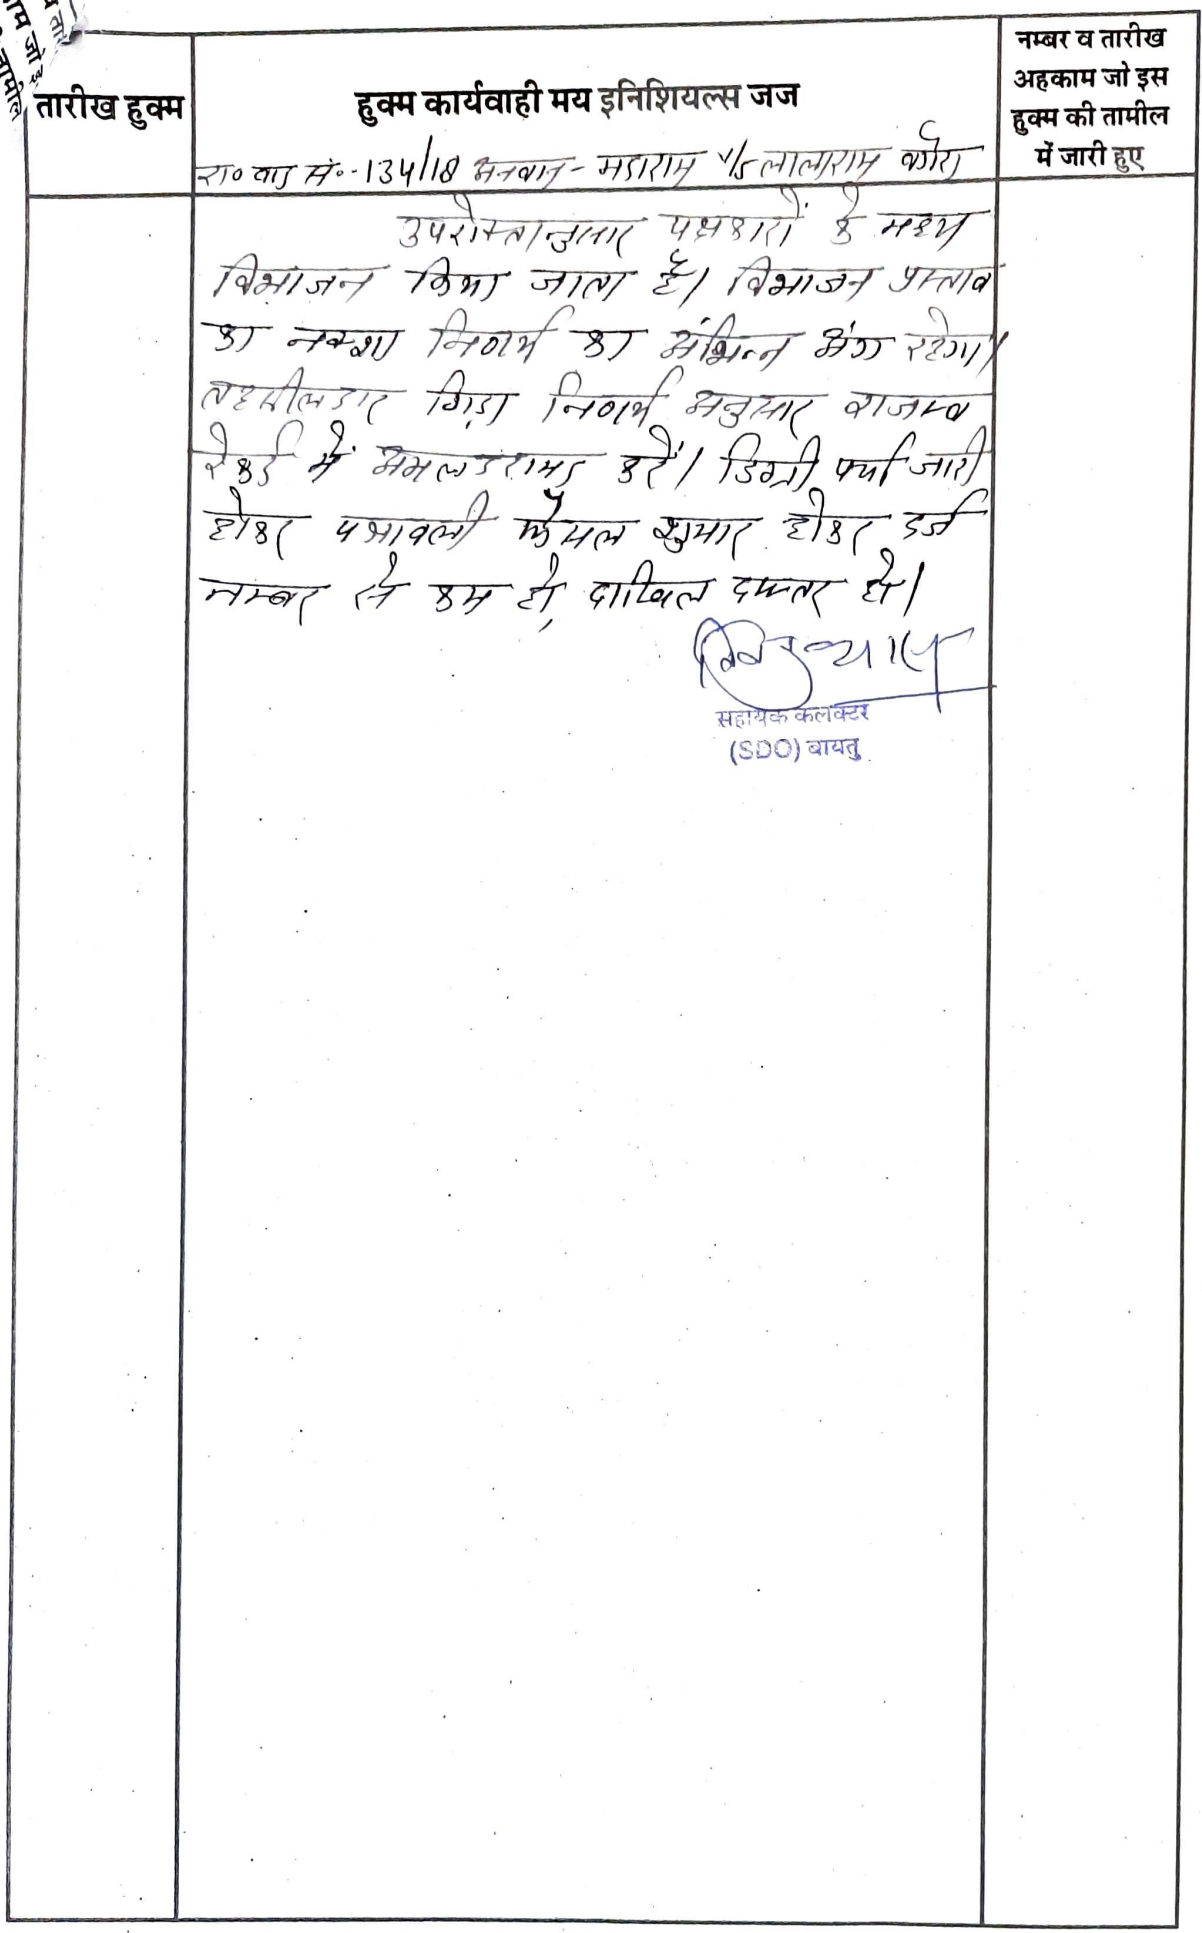 तारीख हुक्म
हुक्म कार्यवाही मय इनिशियल्स जज
नम्बर व तारीख
अहकाम जो इस
हुक्म की तामील
में जारी हुए
रा० वाद सं०-134/18 अनवान - मडाराम v/s लालाराम वगेरा
उपरोक्तानुसार पक्षकारों के मध्य
विभाजन किया जाता है। विभाजन प्रस्ताव
का नक्शा निर्णय का अभिन्न अंग रहेगा।
तहसीलदार गिड़ा निर्णय अनुसार राजस्व
रेकर्ड में अमलदरामद करें। डिक्री पर्चा जारी
होकर पत्रावली फैसल शुमार होकर दर्ज
नम्बर से कम हो, दाखिल दफ्तर हो।
सहायक कलक्टर
(SDO) बायतु